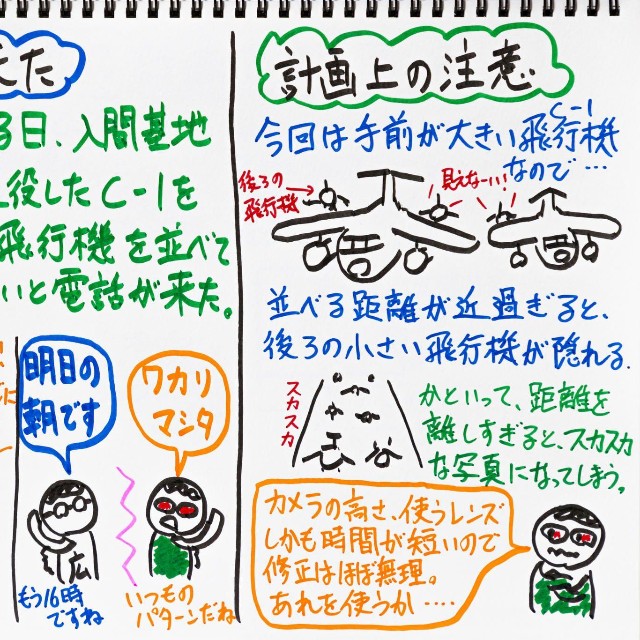 えた
3日、入間基地
役したC-1を
飛行機を並べて
いと電話が来た。
明日の
朝です
ワカリ
マシタ
広
もう16時
ですね
いつもの
パターンだね
計画上の注意
今回は手前が大きい飛行機
C-1
なので…
後ろの
飛行機
見えなーい!
並べる距離が近過ぎると、
後ろの小さい飛行機が隠れる.
スカスカ
かといって、距離を
離しすぎると、スカスカ
な写真になってしまう。
カメラの高さ、使うレンズ
しかも時間が短いので
修正はほぼ無理。
あれを使うか‥‥